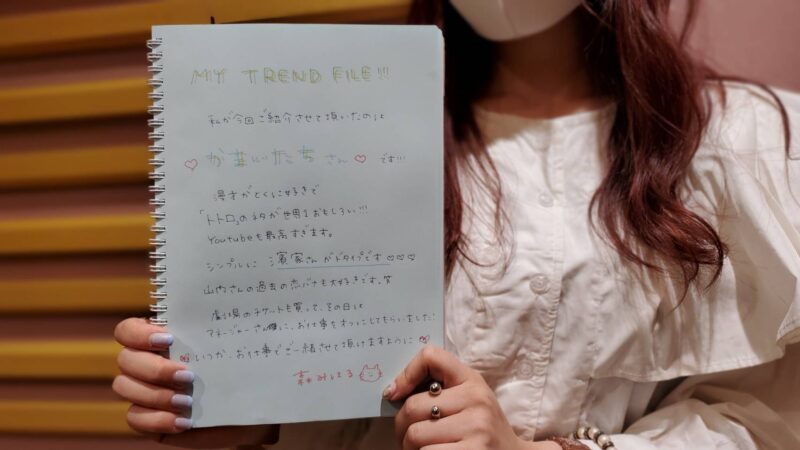 MY TREND FILE!!!
私が今回ご紹介させて頂いたのは
♡かまいたちさん♡です!!!
漫才がとくに好きで
「トトロ」のネタが世界1おもしろい!!!
Youtubeも最高すぎます。
シンプルに 濱家さんがドタイプです♡♡♡
山内さんの過去の恋バナも大好きです。笑
劇場のチケットも買って、その日は
マネージャーさんに、お仕事をオフにしてもらいました!
いつか、お仕事でご一緒させて頂けますように
森みはる